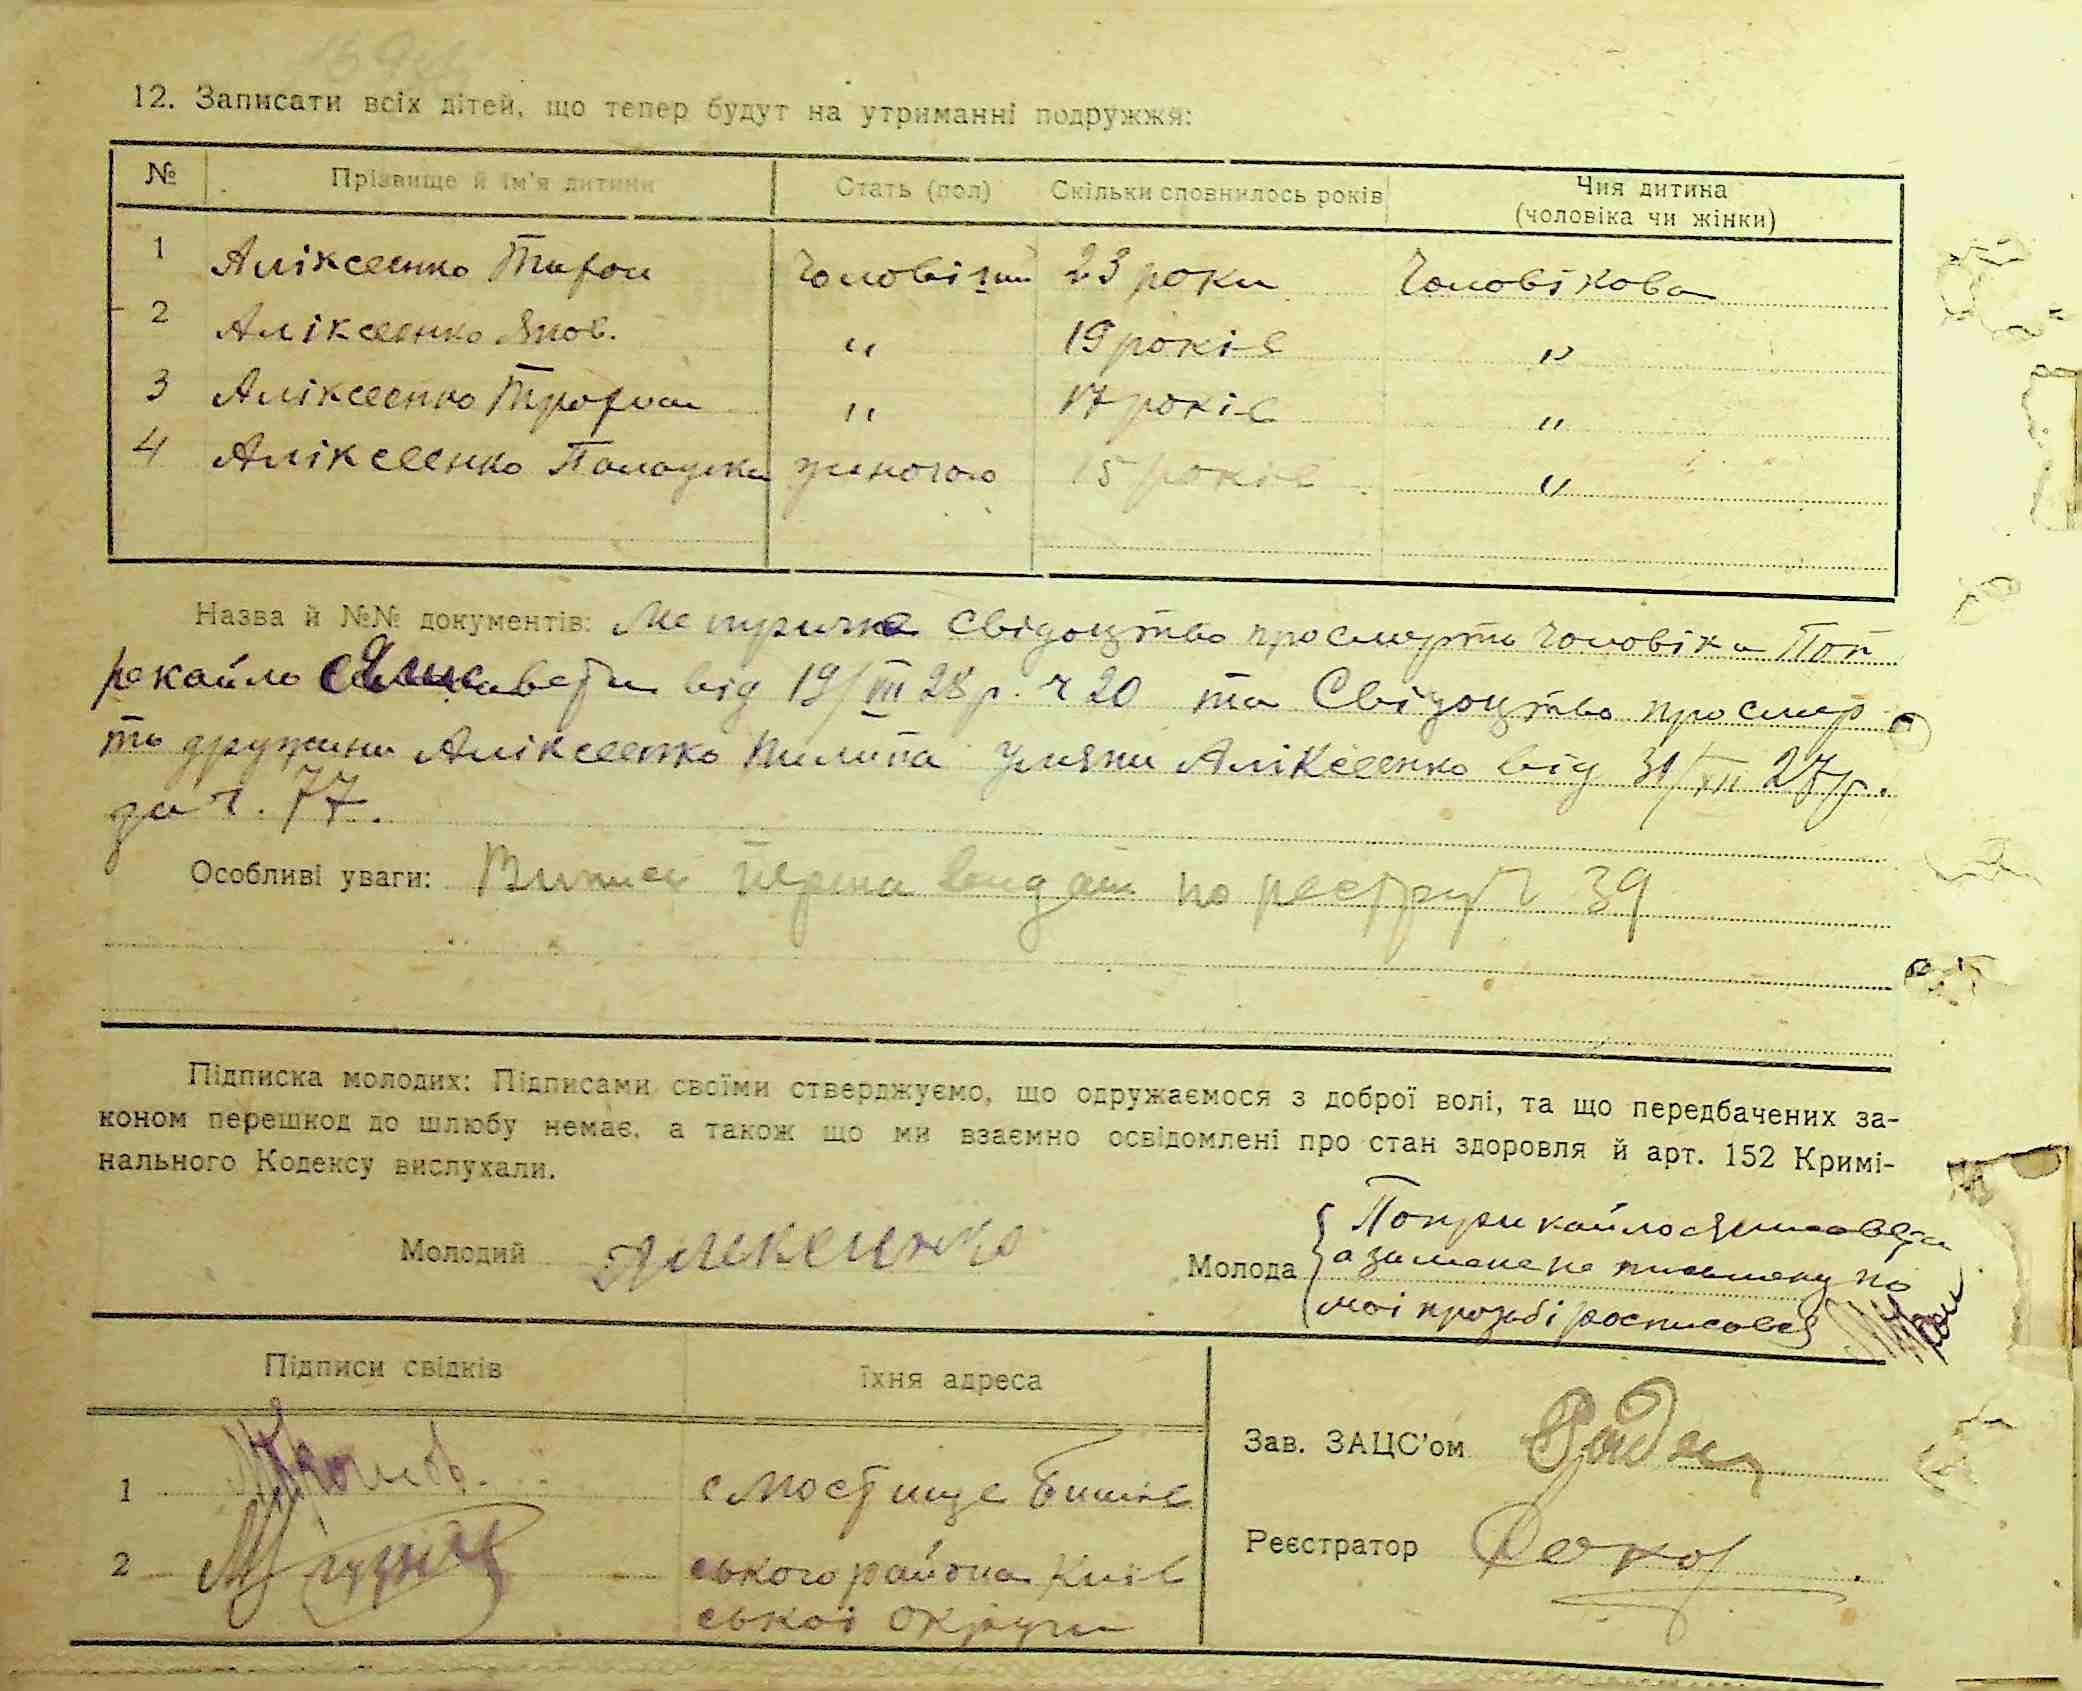 12. Записати всіх дітей, що тепер будут на утриманні подружжя:
№ Прізвище й ім'я дитини Стать (пол) Скільки сповнилось років Чия дитина (чоловіка чи жінки)
1 Аліксеенко 23 роки Чоловікова
2 Аліксеенко Яков. " 19 років "
3 Аліксеенко Трофим " 17 років "
4 Аліксеенко 15 років "
Назва й №№ документів: Метричне Свідоцтво про смерть Чоловіка Поп
рекайло від 19/III 28 р. ч 20 та Свідоцтво про смер
ть дружини Аліксеенко Пилипа Уляни Аліксеенко від 31/XII 27 р.
за ч. 77.
Особливі уваги: по реєстру ч 39
Підписка молодих: Підписами своїми стверджуємо, що одружаємося з доброї волі, та що передбачених за-
коном перешкод до шлюбу немає, а також що ми взаємно освідомлені про стан здоровля й арт. 152 Кримі-
нального Кодексу вислухали.
Молодий
Молода
а за мене не письмену по
моі прозьбі росписався
Підписи свідків Їхня адреса
Зав. ЗАЦС'ом
1 с Мостище Бишів
Реєстратор
2 ського района Київ
ськоі округи